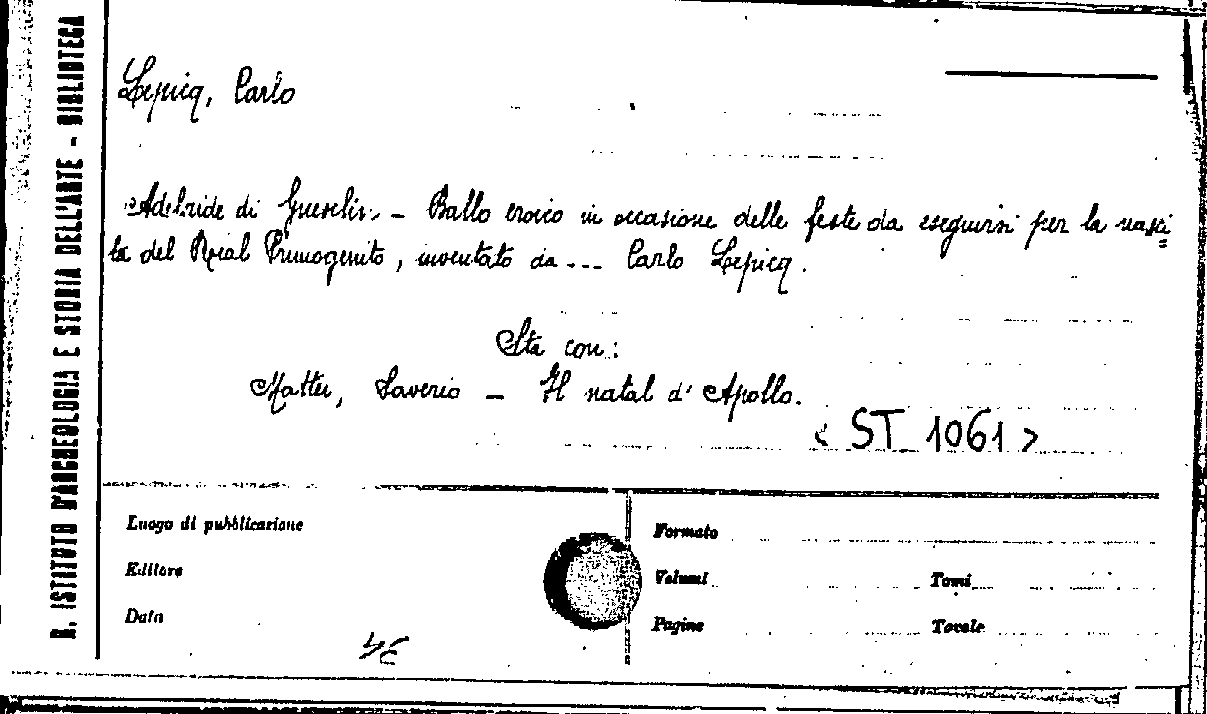 R. ISTITUTO D'ARCHEOLOGIA E STORIA DELL'ARTE - BIBLIOTECA
Lepicq, Carlo
Adelaide di Guesclin. - Ballo eroico in occasione delle feste da eseguirsi per la nasci=
ta del Real Primogenito, inventato da ... Carlo Lepicq.
Sta con:
Mattei, Saverio - Il natal d'Apollo.
< ST 1061 >
Luogo di pubblicazione
Editore
Data
Formato
Volumi Tomi
Pagine Tavole